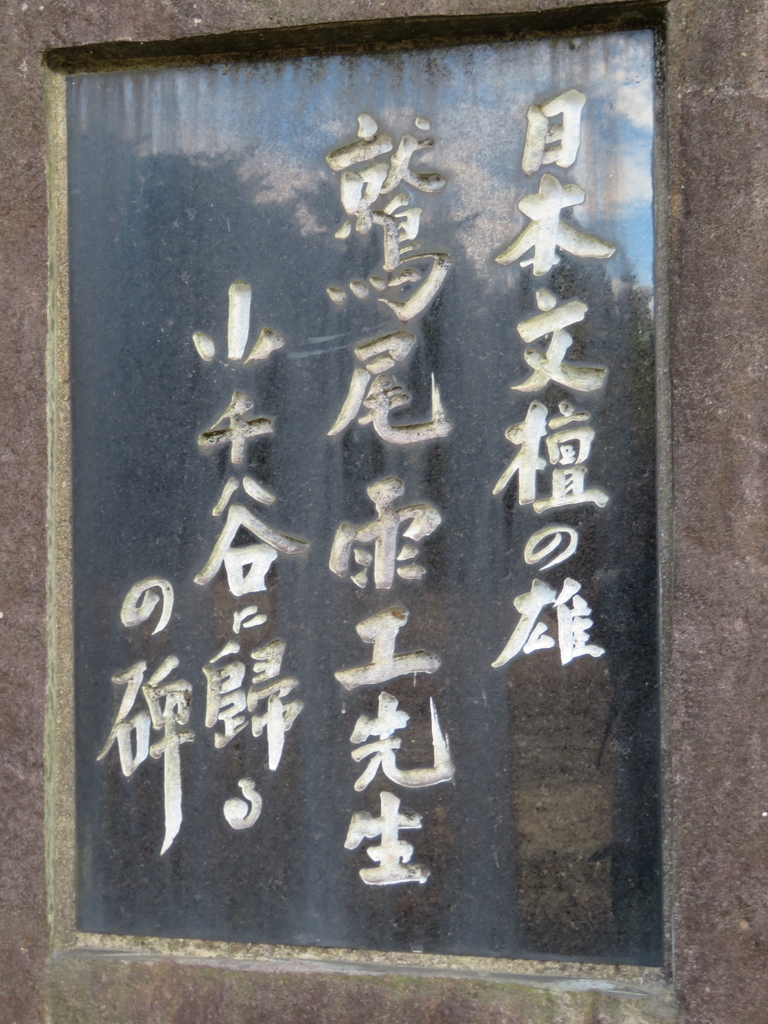 日本文檀の雄
鷲尾雨工先生
小千谷に歸る
の碑